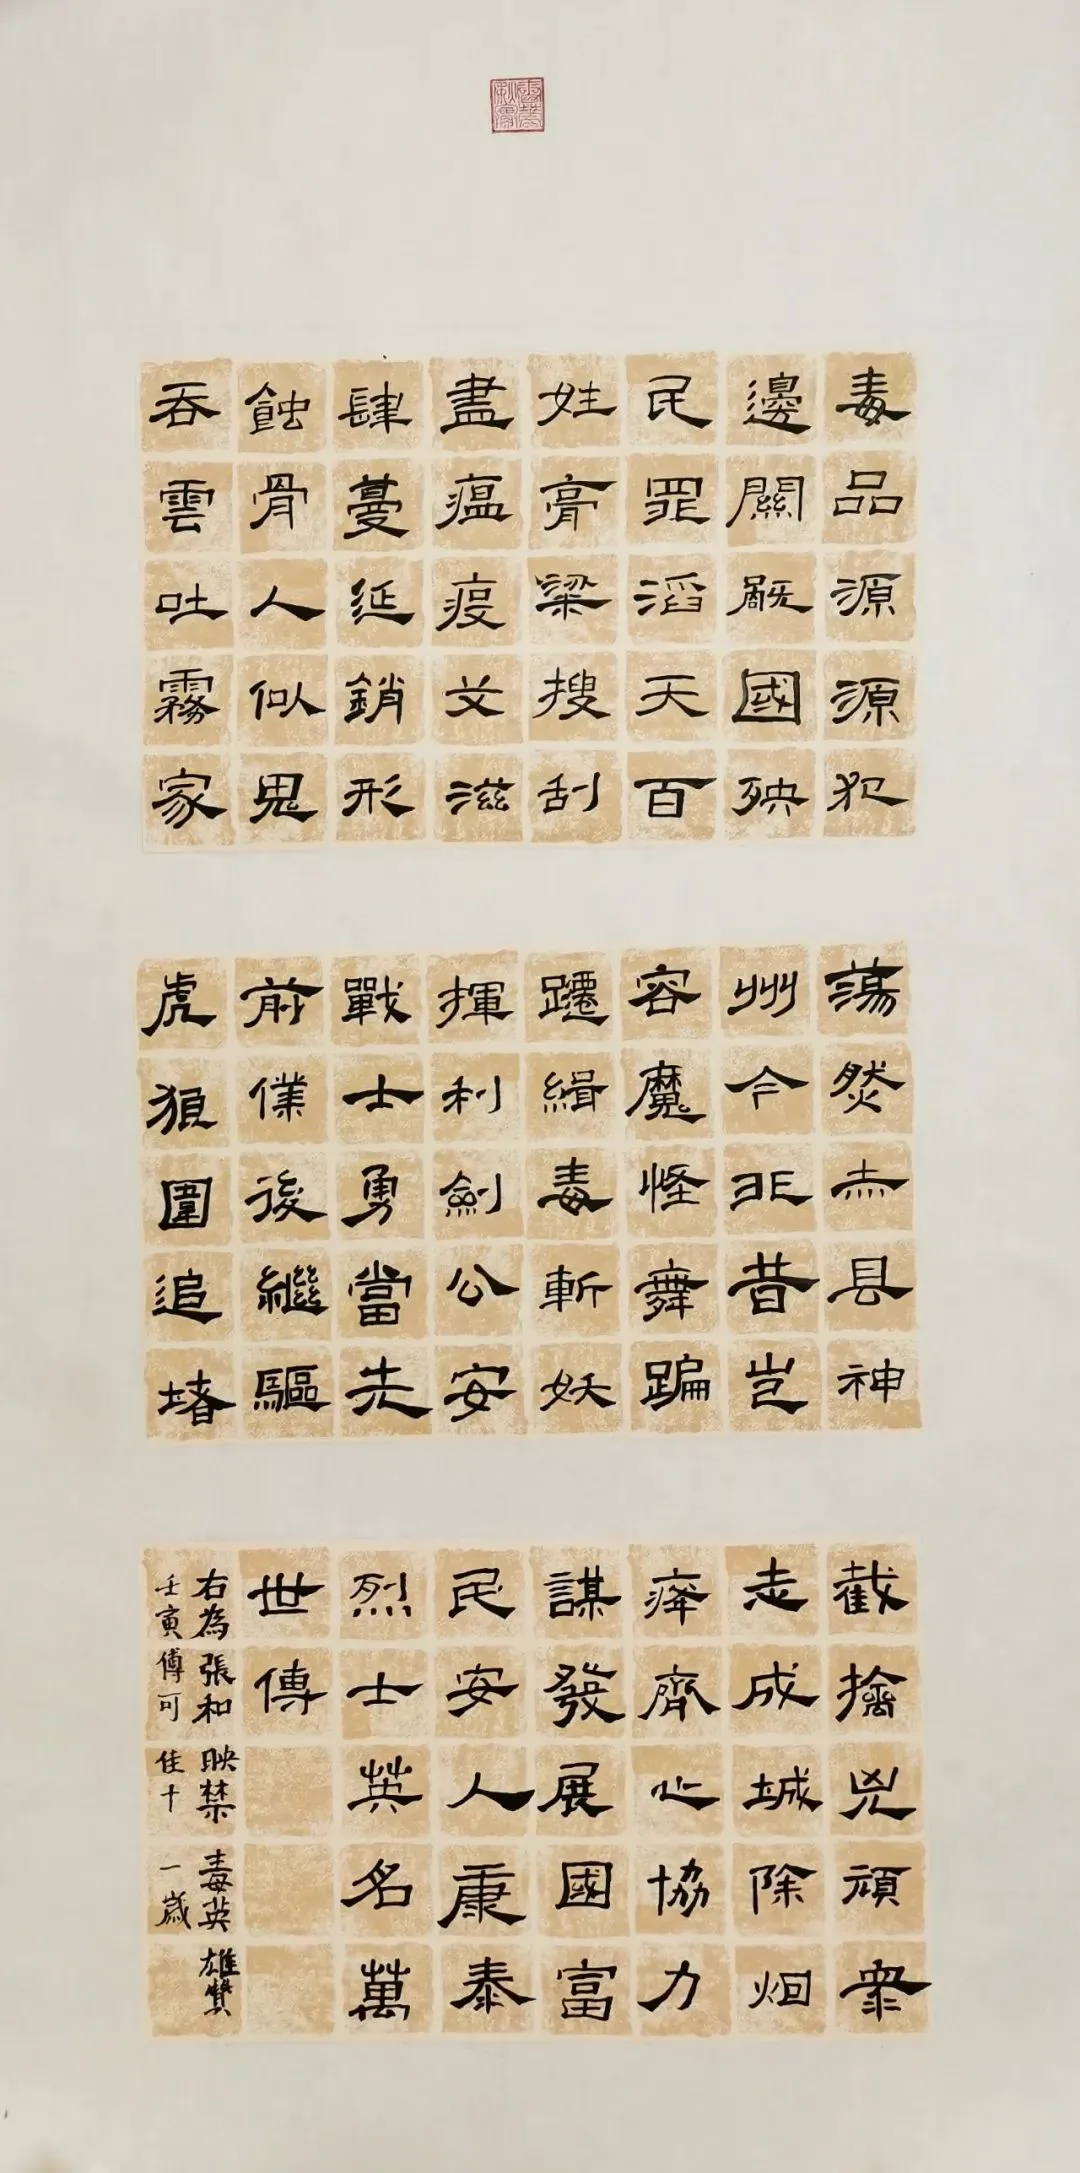 毒品源源犯
邊關旤國殃
民罪滔天百
姓膏梁搜刮
盡瘟疫艾滋
肆蔓延銷形
蝕骨人似鬼
吞雲吐霧家
蕩然赤县神
州今非昔豈
容魔怪舞蹁
躚緝毒斬妖
揮利劍公安
戰士勇當先
前僕後繼驅
虎狼圍追堵
截擒兇頑眾
志成城除烟
瘴齊心協力
謀發展國富
民安人康泰
烈士英名萬
世傳
右為張和映禁毒英雄贊
壬寅傅可佳十一歲